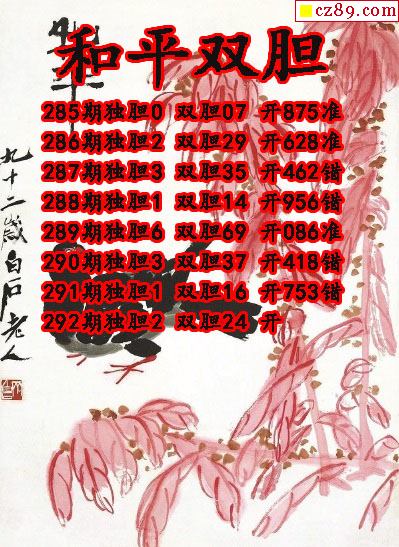 cz89.com
和平双胆
285期独胆0 双胆07 开875准
286期独胆2 双胆29 开628准
287期独胆3 双胆35 开462错
288期独胆1 双胆14 开956错
289期独胆6 双胆69 开086准
290期独胆3 双胆37 开418错
291期独胆1 双胆16 开753错
292期独胆2 双胆24 开
九十二岁白石老人